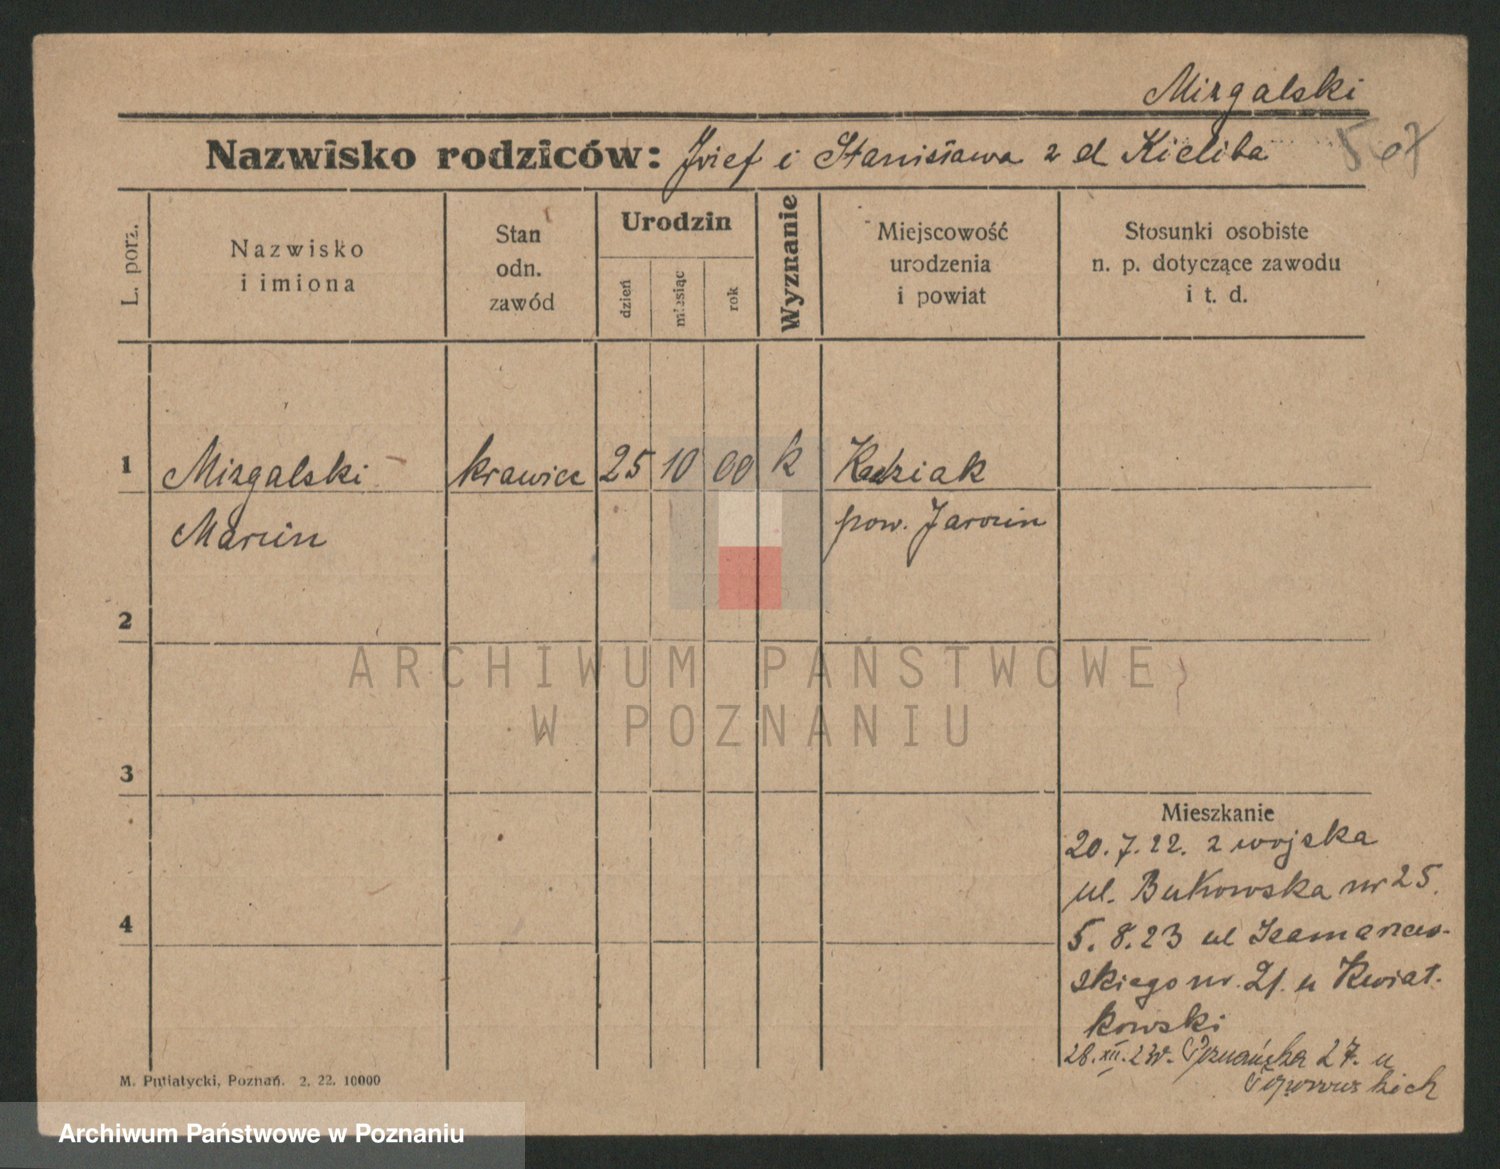 Mizgalski
Nazwisko rodziców: Józef i Stanisława z d Kieliba
L. porz.
Nazwisko
i imiona
Stan
odn.
zawód
Urodzin
dzień
miesiąc
rok
Wyznanie
Miejscowość
urodzenia
i powiat
Stosunki osobiste
n. p. dotyczące zawodu
i t. d.
1
Mizgalski krawiec 25 10 00 k
Marcin pow. Jarocin
2
ARCHIWUM PAŃSTWOWE
W POZNANIU
3
Mieszkanie
20.7.22. z wojska
ul. Bukowska nr 25.
4
5.8.23 ul
skiego nr. 21. u Kwiat-
kowski
28.XII.23r. Poznańska 27. u
M. Putiatycki, Poznań. 2. 22. 10000
Archiwum Państwowe w Poznaniu